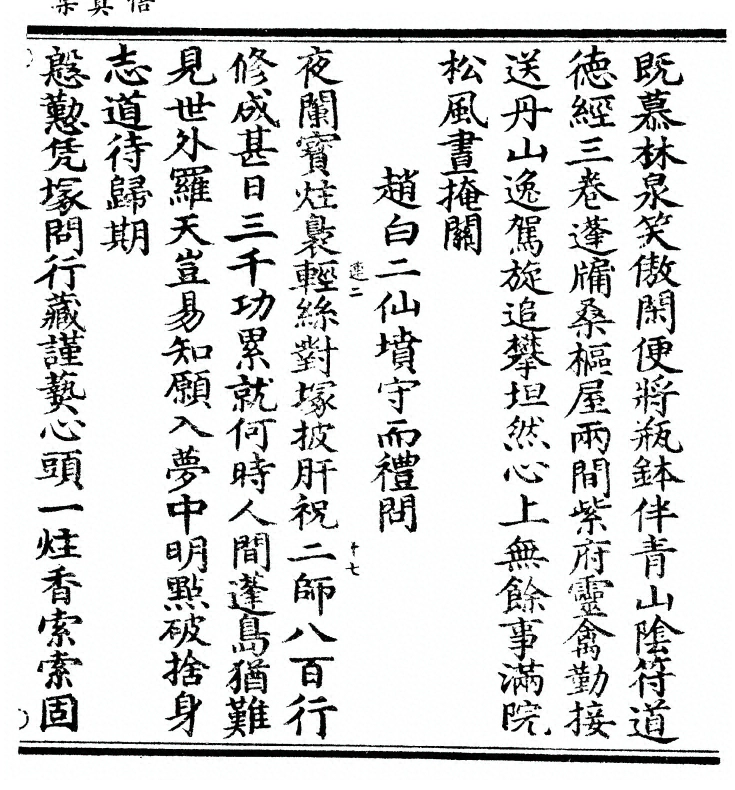 既慕林泉笑傲閑便將瓶鉢伴青山陰符道
德經三卷蓬牖桑樞屋兩間紫府靈禽勤接
送丹山逸駕旋追攀坦然心上無餘事滿院
松風晝掩關
趙白二仙墳守而禮問
夜闌寳炷裊輕絲對塚披肝祝二師八百行
修成甚日三千功累就何時人間蓬島猶難
見世外羅天豈易知願入夢中明點破捨身
志道待歸期
慇懃凭塚問行藏謹爇心頭一炷香索索固